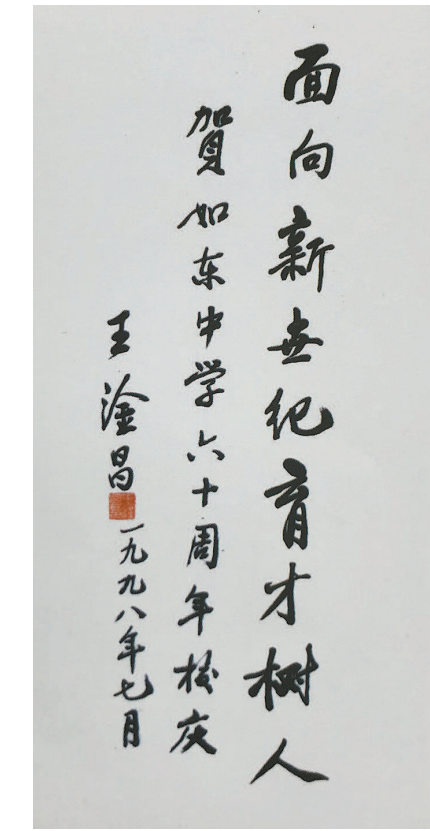 面向新世纪育才树人
賀如东中学六十周年校庆
王淦昌
一九九八年七月